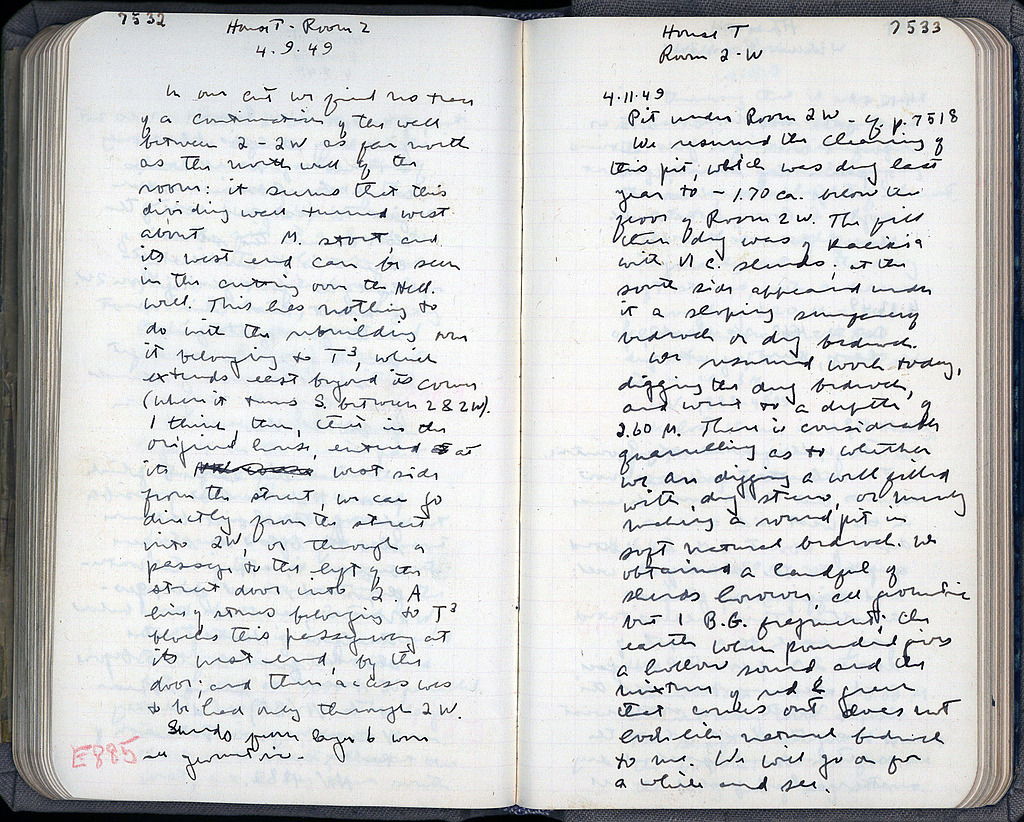 7532
House T - Room 2
4.9.49
In our cut we find no trace
of a continuation of the wall
between 2 - 2W as far north
as the north wall of the
room: it seems that this
dividing wall turned west
about M. short, and
its west end can be seen
in the cutting over the Hell.
wall. This has nothing to
do with the rebuilding over
it belonging to T³, which
extends east beyond its corner
(where it turns S. between 2 & 2W).
I think, then, that in the
original house, entered at
its west side
from the street, we can go
directly from the street
into 2W, or through a
passage to the left of the
street door into 2. A
line of stones belonging to T³
blocks this passageway at
its west end, by the
door; and then access was
to be had only through 2W.
Sherds from layer 6 were
all geometric.
E885
7533
House T
Room 2-W
4.11.49
Pit under Room 2W - cf. p. 7518
We resumed the clearing of
this pit, which was dug last
year to - 1.70 ca. below the
floor of Room 2W. The fill
then dug was of kaikia
with V C. sherds; at the
south side appeared under
it a sloping surface of
bedrock or dug bedrock.
We resumed work today,
digging the dug bedrock,
and went to a depth of
2.60 M. There is considerable
quarrelling as to whether
we are digging a well filled
with dug stereo, or merely
making a round pit in
soft natural bedrock. We
obtained a handful of
sherds however, all geometric
but 1 B.G. fragment; the
earth when pounded gives
a hollow sound and the
mixture of red & green
that comes out does not
look like natural bedrock
to me. We will go on for
a while and see.